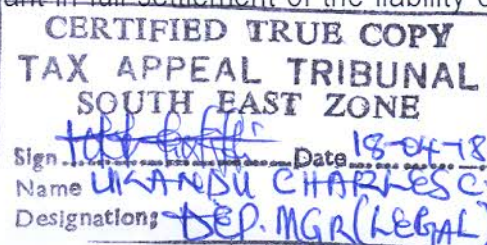 in full settlement of the liability
CERTIFIED TRUE COPY
TAX APPEAL TRIBUNAL
SOUTH EAST ZONE
Sign Date 18-04-18
Name UKANDU CHARLES C.
Designation: DEP. MGR (LEGAL)